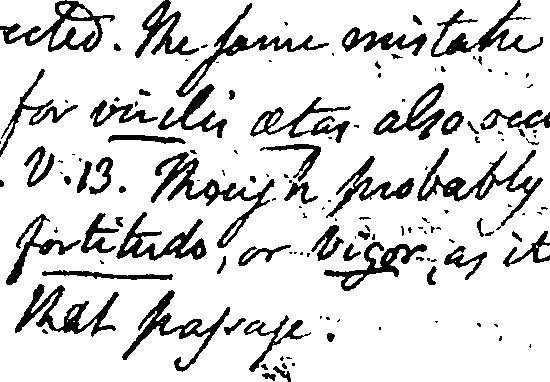 ected. The same mistake
for virilis ætas also occu
. V. 13. Though probably
fortitudo, or vigor, as it
that passage.